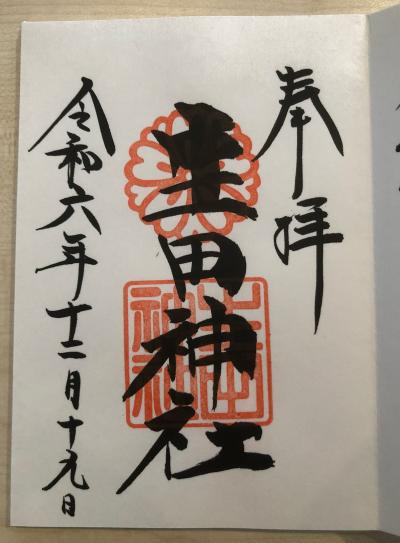 奉拝
生田神社
生田
神社
令和六年十二月十九日